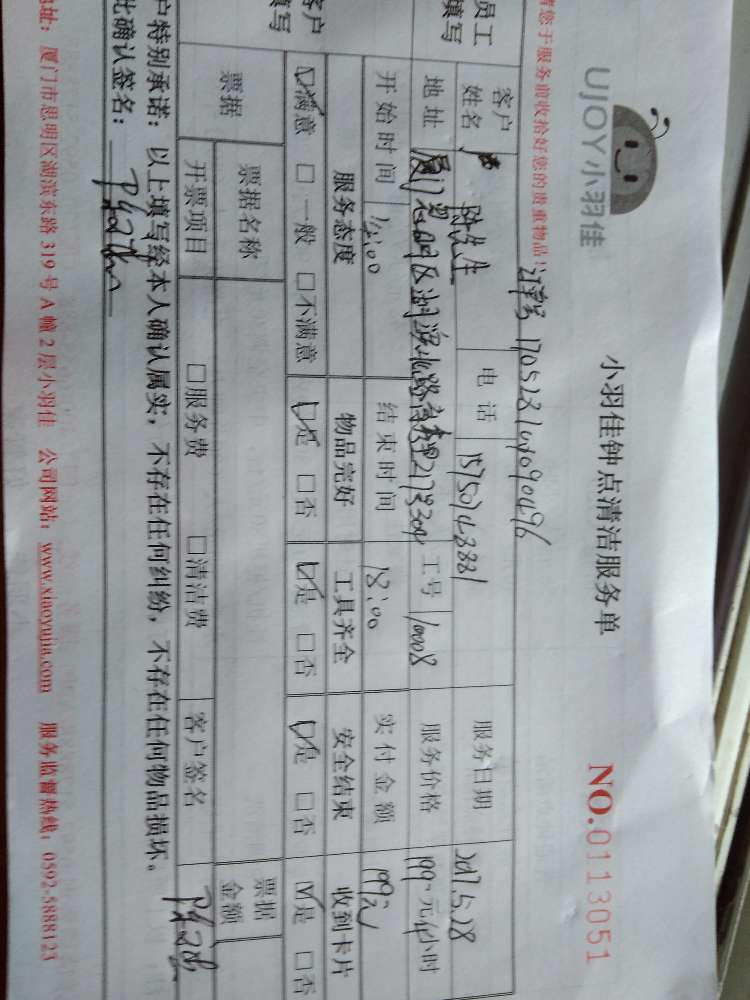 UJOY小羽佳
小羽佳钟点清洁服务单
NO.0113051
请您于服务前收拾好您的贵重物品!
员工
填写
客户姓名 陈先生 电话 服务日期 2017.5.28
地址 厦门思明区湖滨北路 工号 10008 服务价格 199-元/4小时
开始时间 14:00 结束时间 18:00 实付金额 199元
客户
填写
服务态度 物品完好 工具齐全 安全结束 收到卡片
☑满意 □一般 □不满意 ☑是 □否 ☑是 □否 ☑是 □否 ☑是 □否
票据 票据名称 票据金额
开票项目 □服务费 □清洁费 客户签名
户特别承诺:以上填写经本人确认属实,不存在任何纠纷,不存在任何物品损坏。
此确认签名:
地址:厦门市思明区湖滨东路319号A幢2层小羽佳 公司网站:www.xiaoyujia.com 服务监督热线:0592-5888123